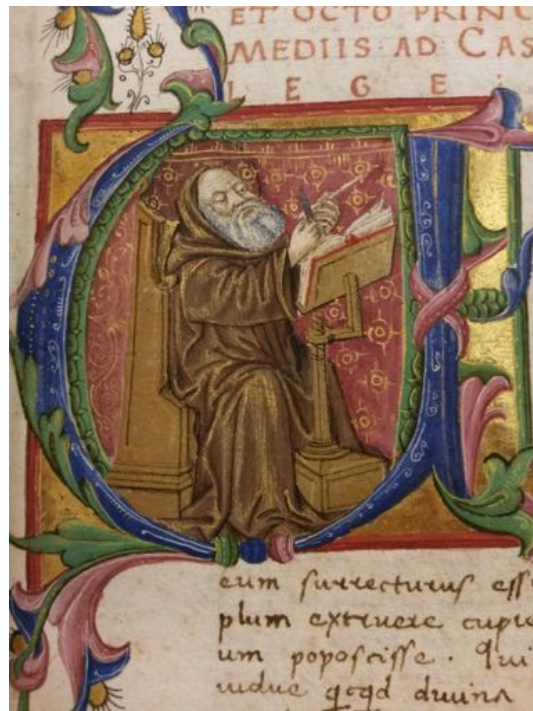 ET OCTO PRINC
MEDIIS AD CAS
L E G E
eum surrecturus ess
plum extruere cupie
um poposcisse. Qui
uidue qcqd diuina